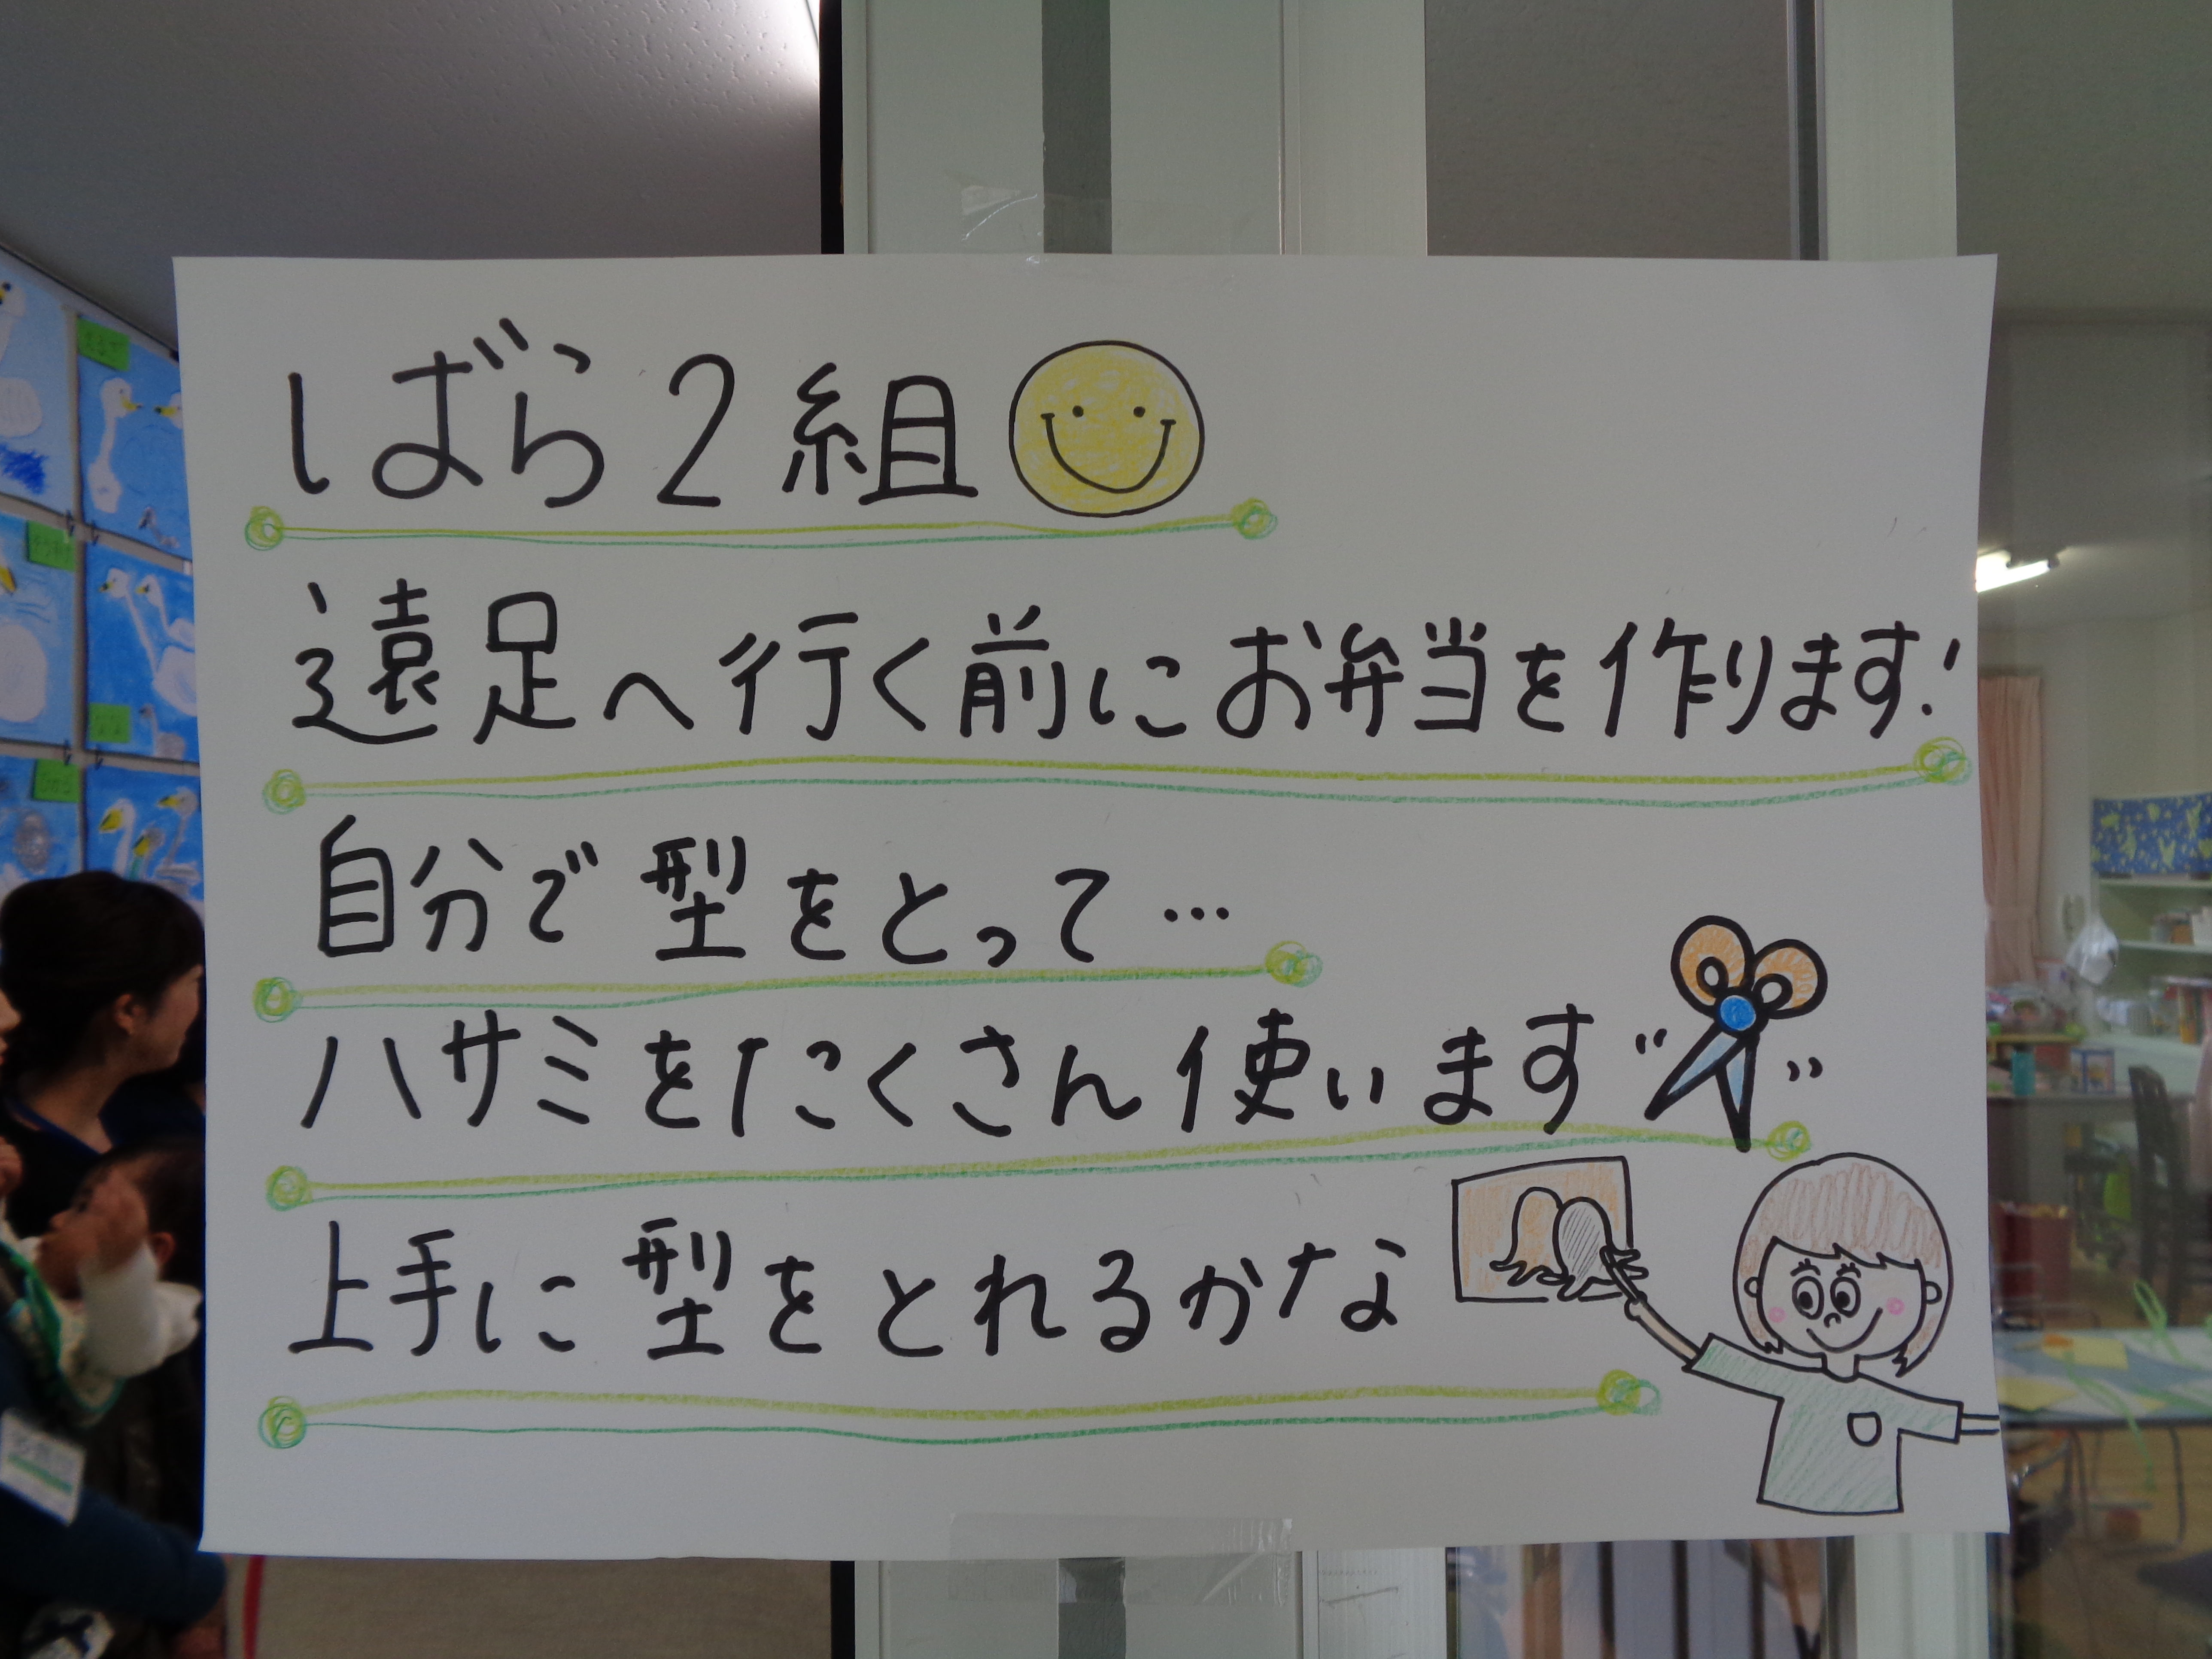 ばら2組
遠足へ行く前にお弁当を作ります!
自分で型をとって…
ハサミをたくさん使います
上手に型をとれるかな